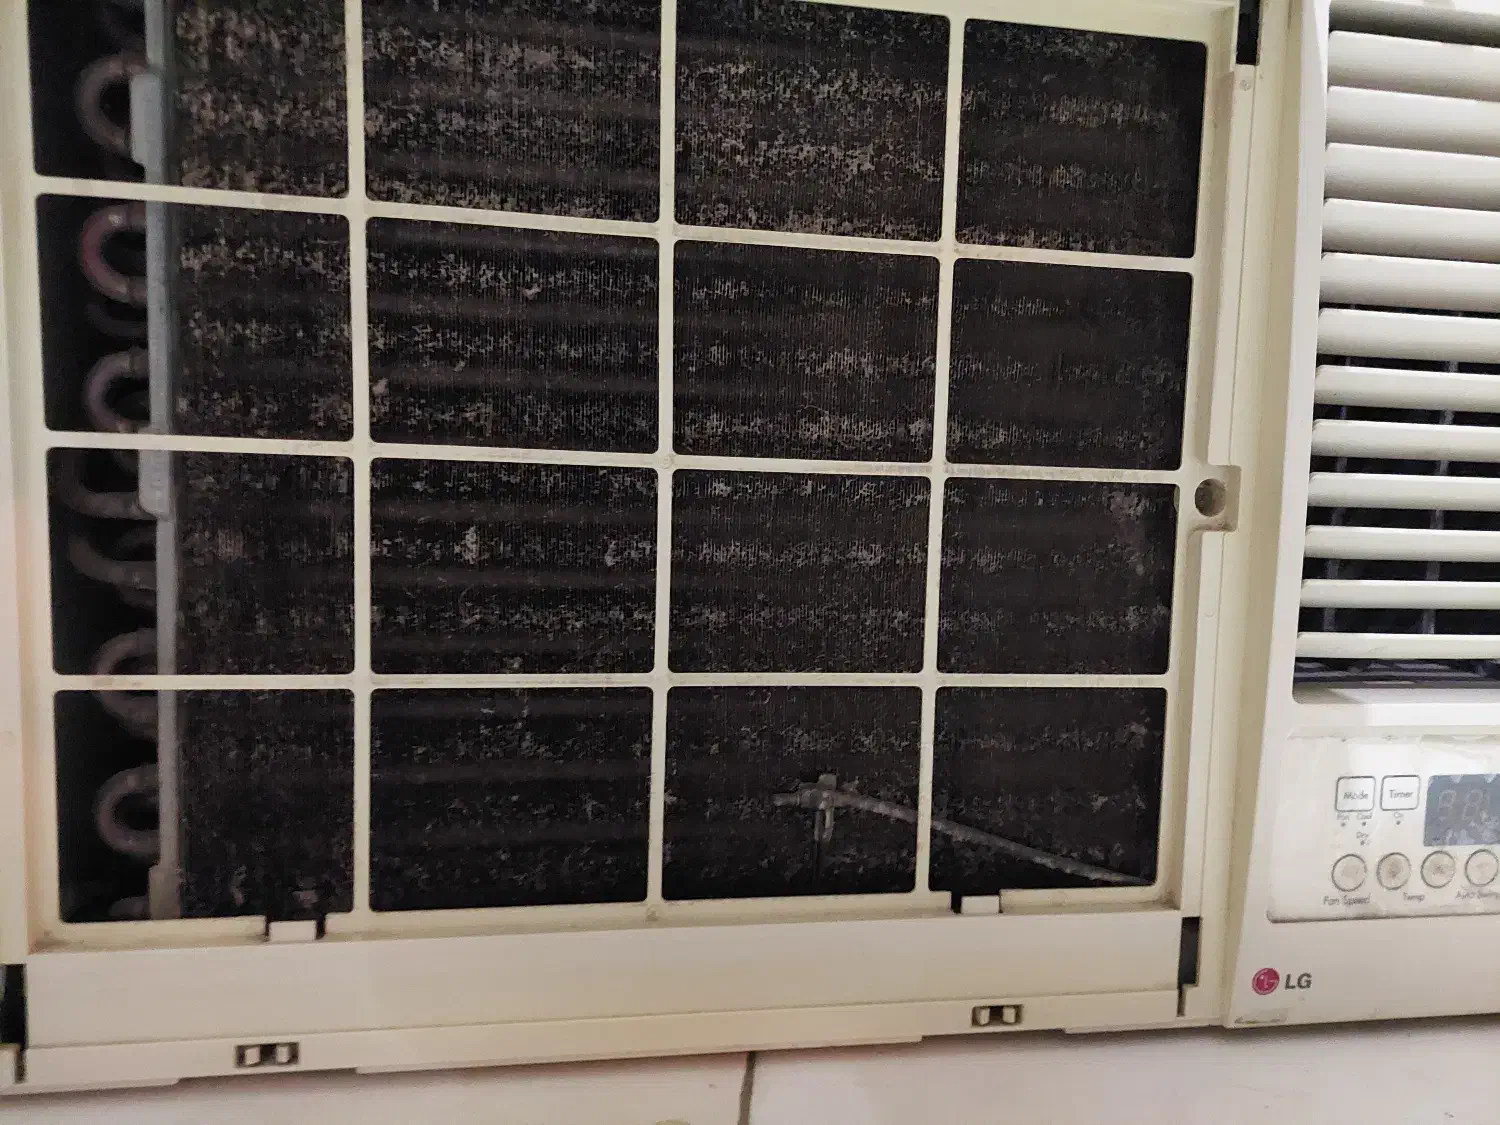 Mode Timer
Fan Cool On
Dry
Fan Speed Temp Auto Swing
LG